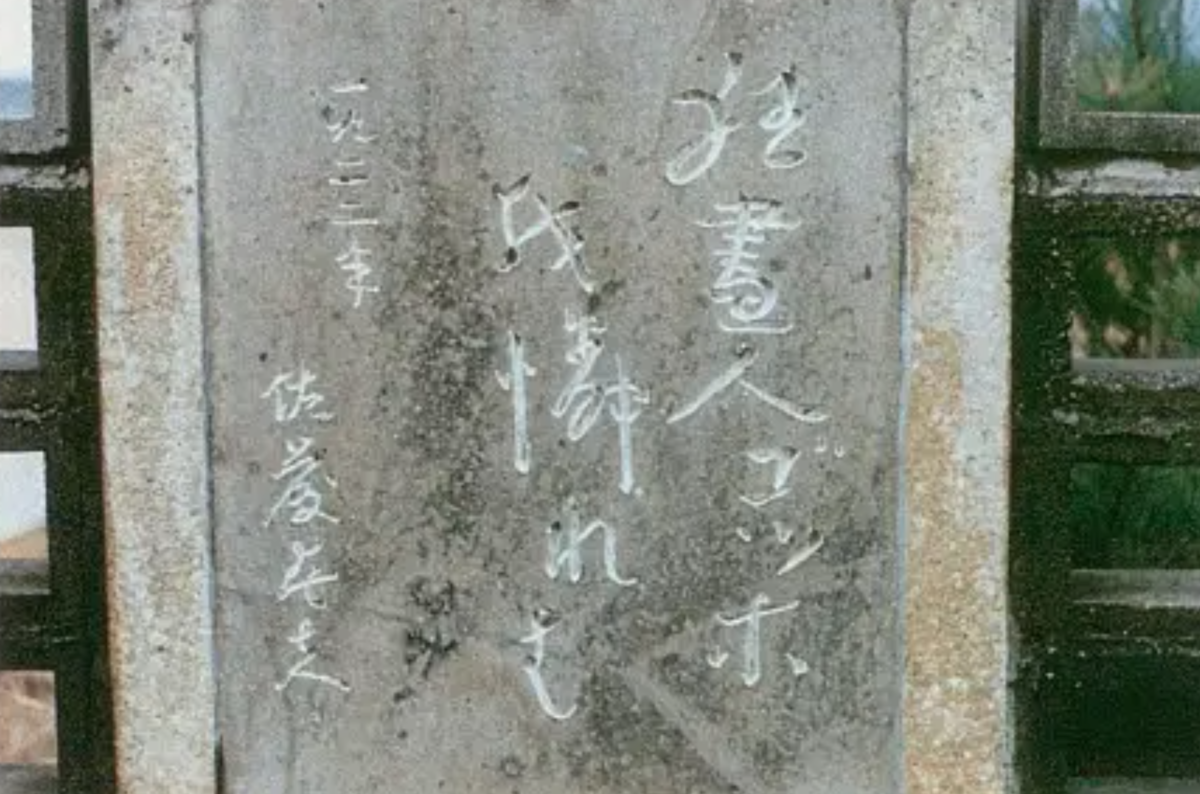 狂畫人ゴッホ
我憐れむ
一九二二年 佐藤春夫